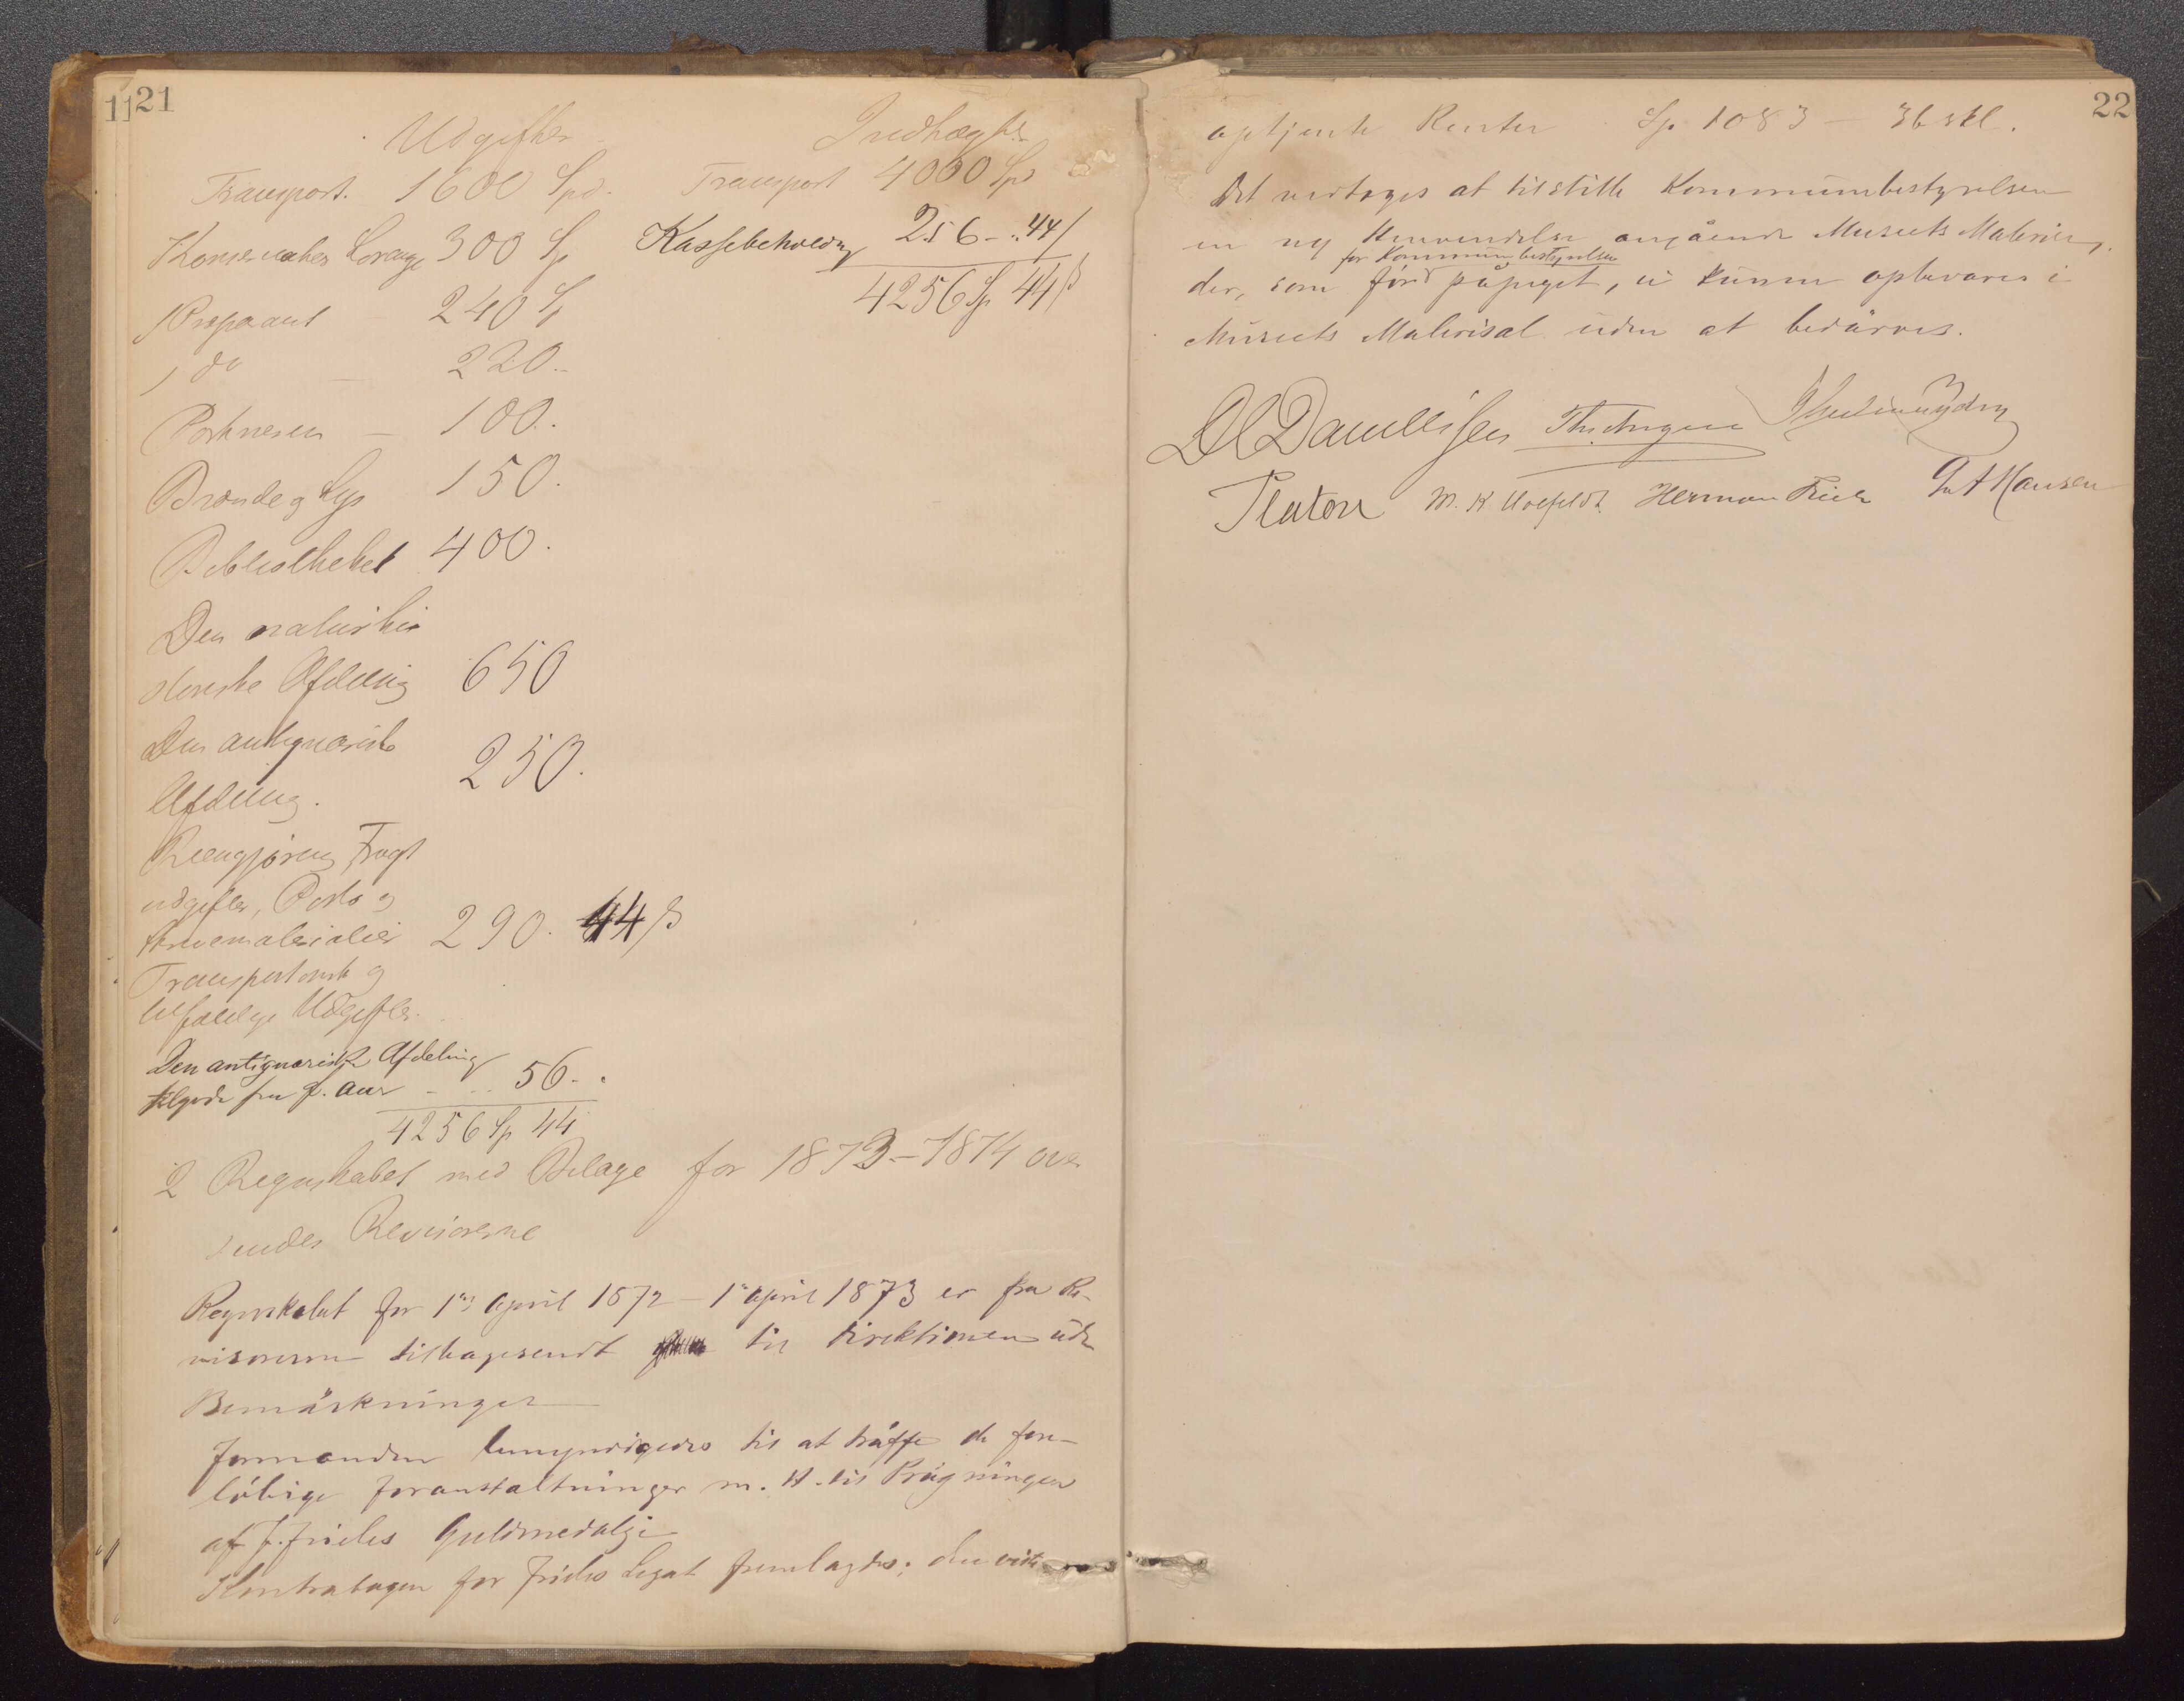 1121
Udgifter
Transport. 1600 Spd.
Konservator Lorange 300 Sp
1 Præparant 240 Sp
1 do 220.
Portneren 100.
Brænde og Lys 150.
Bibliotheket 400.
Den naturhi
storiske Afdeling 650
Den antiqvariske
Afdeling. 250.
Reengjøring, Fragt
udgifter, Porto og
Skrivematerialier 290. 44 ß
og
tilfældige Udgifter.
Den antiqvariske Afdeling
tilgode fra f. Aar 56.
4256 Sp 44
Indtægter
Transport 4000 Spd
Kassebeholdng 256 - 44 ß
4256 Sp 44 ß
2 Regnskabet med Bilage for 1873-1874 over
sendes Revisorerne
Regnskabet for 1ste april 1872 - 1ste april 1873 er fra Re-
visorerne tilbagesendt til Direktionen uden
Bemärkninger
Formanden bemyndigedes til at träffe de fore-
löbige Foranstaltninger m. H. til Prägningen
af J. Frieles Guldmedalje
Kontrabogen for Frieles Legat fremlagdes; den viste
22
optjente Renter Sp. 1083 - 36 skl.
Det vedtoges at tilstille Kommunebestyrelsen
en ny Henvendelse angående Museets Malerier,
for Kommunebestyrelsen
der, som før påpeget, ei kunne opbevares i
Museets Malerisal uden at bedärves.
DC Danielssen
Platou Herman Friele Hansen